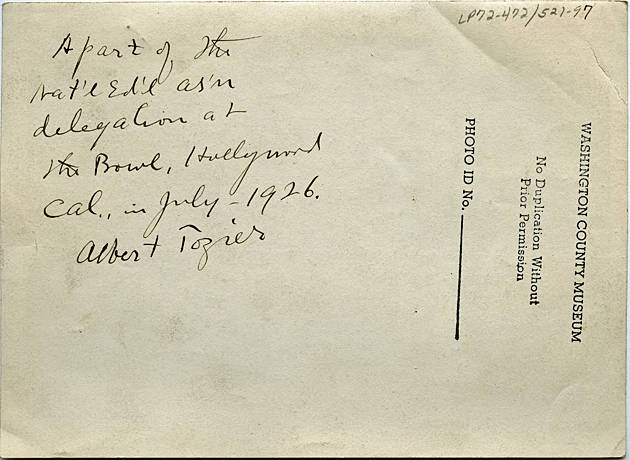 LP72-472/521-97
A part of the
Nat'l Ed'l as'n
delegation at
the Bowl, Hollywood
Cal., in July - 1926.
Albert Tozier
WASHINGTON COUNTY MUSEUM
No Duplication Without
Prior Permission
PHOTO ID No.